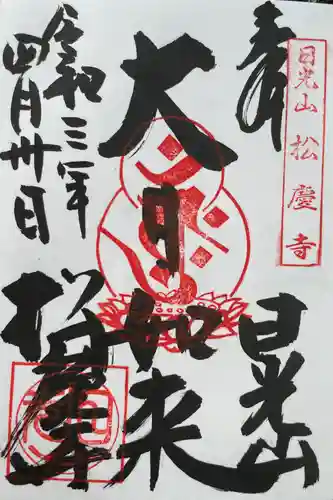 奉
日光山 松慶寺
日光山
大日如来
松慶寺
令和三年
四月卅日